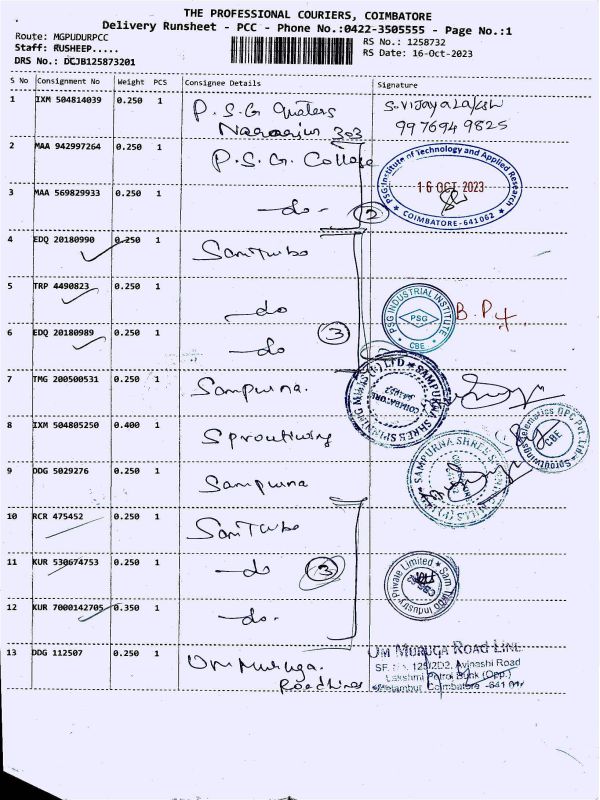 THE PROFESSIONAL COURIERS, COIMBATORE
Delivery Runsheet - PCC - Phone No.:0422-3505555 - Page No.:1
Route: MGPUDURPCC
RS No.: 1258732
Staff: RUSHEEP.....
RS Date: 16-Oct-2023
DRS No.: DCJB125873201
S No Consignment No Weight PCS Consignee Details Signature
1 IXM 504814039 0.250 1 P.S.G Quaters S.VIJAYALAKSH
303 9976949825
2 MAA 942997264 0.250 1 P.S.G. College
PSG Institute of Technology and Applied Research
16 OCT 2023
COIMBATORE-641062
3 MAA 569829933 0.250 1 -do- 2
4 EDQ 20180990 0.250 1 Sam Turbo
5 TRP 4490823 0.250 1 do
PSG INDUSTRIAL INSTITUTE
PSG
CBE
6 EDQ 20180989 0.250 1 do 3
7 TMG 200500531 0.250 1 Sampurna.
SAMPURNA SHRES SPINNING MILLS (I) LTD
COIMBATORE
8 IXM 504805250 0.400 1 Sproutwing
Telematics OPC Pvt. Ltd
CBE
9 DDG 5029276 0.250 1 Sampurna
SAMPURNA SHRES SPINNING MILLS (I)
10 RCR 475452 0.250 1 Sam Turbo
11 KUR 530674753 0.250 1 -do 3
Sam Turbo Industry Private Limited
12 KUR 7000142705 0.350 1 -do.
13 DDG 112507 0.250 1 Om Muruga.
Roadlines
OM MURUGA ROAD LINE
SF. No. 125/2D2, Avinashi Road
Lakshmi Petrol Bunk (Opp.)
Neelambur Coimbatore -641